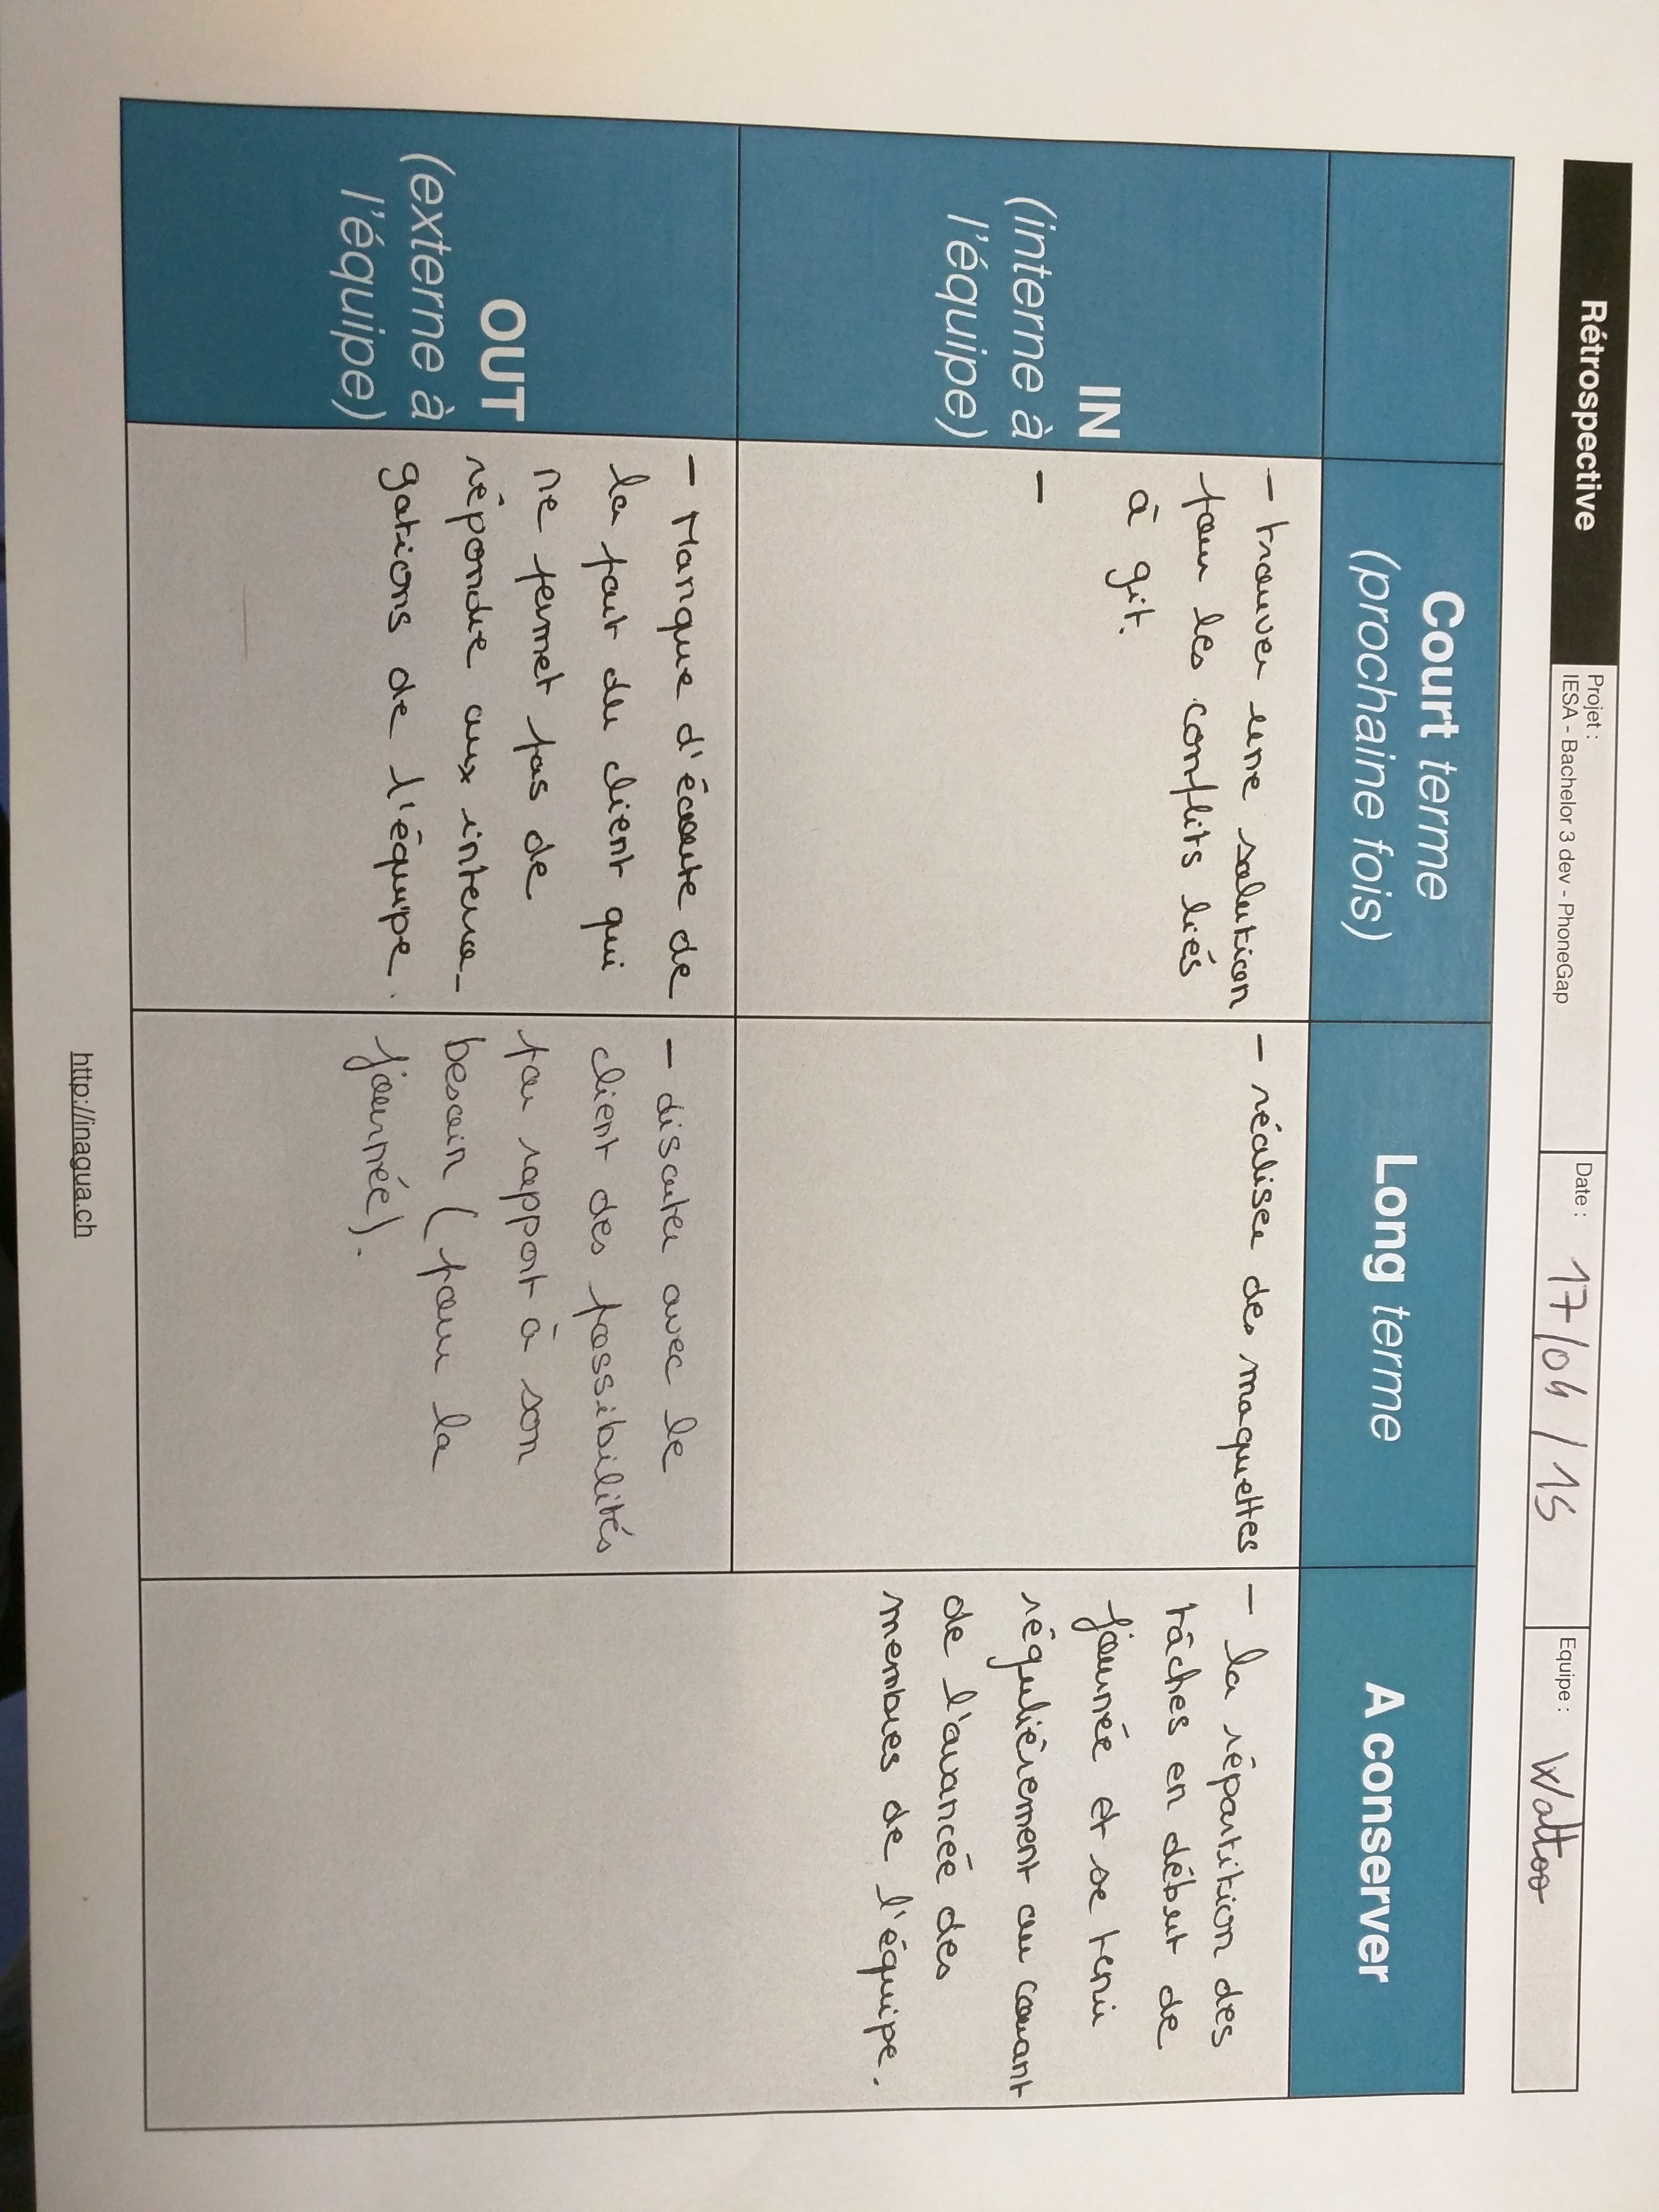 Rétrospective
Projet :
IESA - Bachelor 3 dev - PhoneGap
Date : 17/04/15
Equipe : Wattoo
Court terme
(prochaine fois)
Long terme
A conserver
IN
(interne à
l'équipe)
- trouver une solution
pour les conflits liés
à git.
-
- réaliser des maquettes
- la répartition des
tâches en début de
journée et se tenir
régulièrement au courant
de l'avancée des
membres de l'équipe.
OUT
(externe à
l'équipe)
- Manque d'écoute de
la part du client qui
ne permet pas de
répondre aux interro-
gations de l'équipe.
- discuter avec le
client des possibilités
par rapport à son
besoin (pour la
journée).
http://inagua.ch